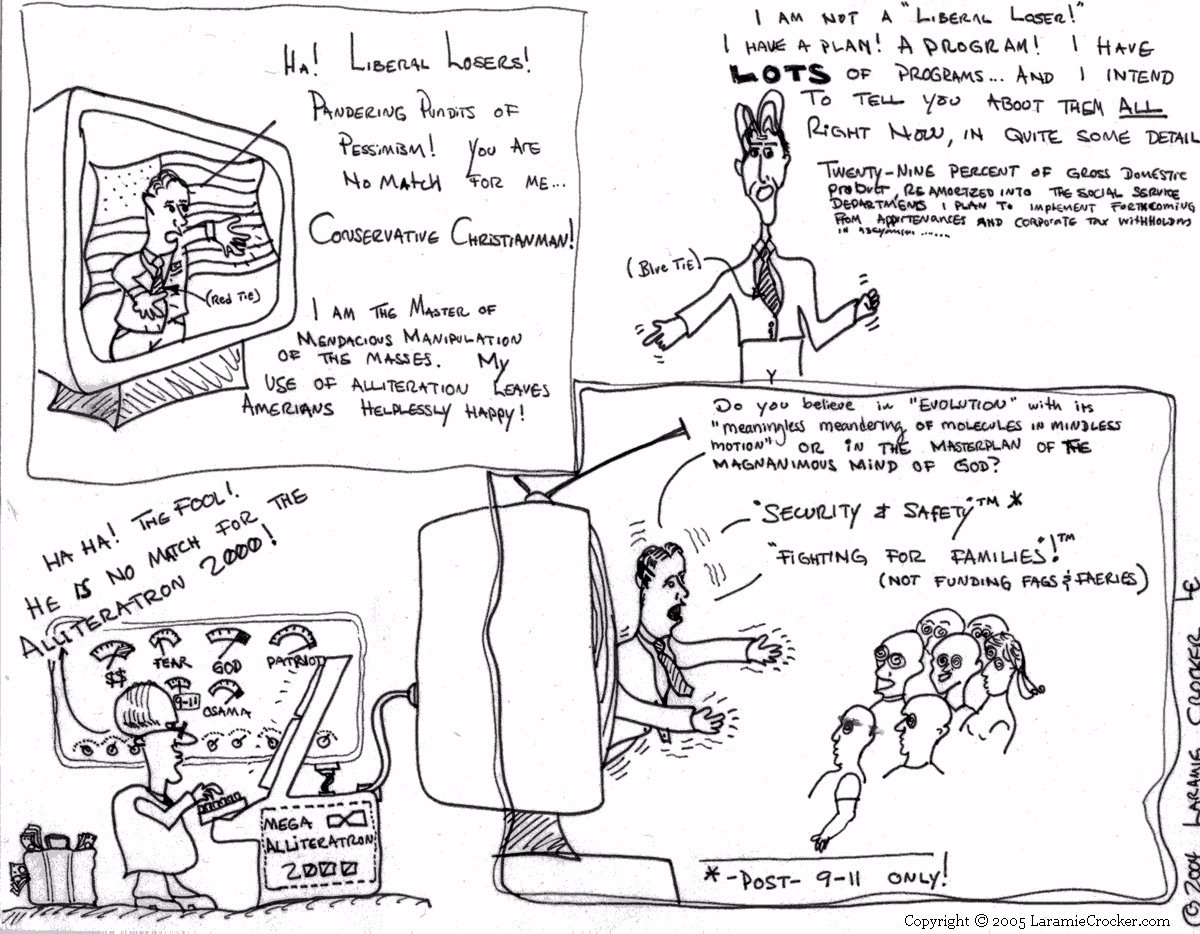 HA! LIBERAL LOSERS!
PANDERING PUNDITS OF
PESSIMISM! YOU ARE
NO MATCH FOR ME...
CONSERVATIVE CHRISTIANMAN!
(RED TIE)
I AM THE MASTER OF
MENDACIOUS MANIPULATION
OF THE MASSES. MY
USE OF ALLITERATION LEAVES
AMERIANS HELPLESSLY HAPPY!
I AM NOT A "LIBERAL LOSER!"
I HAVE A PLAN! A PROGRAM! I HAVE
LOTS OF PROGRAMS... AND I INTEND
TO TELL YOU ABOUT THEM ALL
RIGHT NOW, IN QUITE SOME DETAIL
TWENTY-NINE PERCENT OF GROSS DOMESTIC
PRODUCT, REAMORTIZED INTO THE SOCIAL SERVICE
DEPARTMENTS I PLAN TO IMPLEMENT FORTHCOMING
FROM APPERTENANCES AND CORPORATE TAX WITHHOLDING
IN
(BLUE TIE)
HA HA! THE FOOL!
HE IS NO MATCH FOR THE
ALLITERATRON 2000!
$$
FEAR
GOD
PATRIOT
9-11
OSAMA
MEGA
ALLITERATRON
2000
Do you believe in "EVOLUTION" with its
"meaningless meandering of molecules in mindless
motion" OR IN THE MASTERPLAN OF THE
MAGNANIMOUS MIND OF GOD?
"SECURITY & SAFETY"™ *
"FIGHTING FOR FAMILIES"!™
(NOT FUNDING FAGS & FAERIES)
*-POST- 9-11 ONLY!
© 2004 LARAMIE CROCKER
LC
Copyright © 2005 LaramieCrocker.com